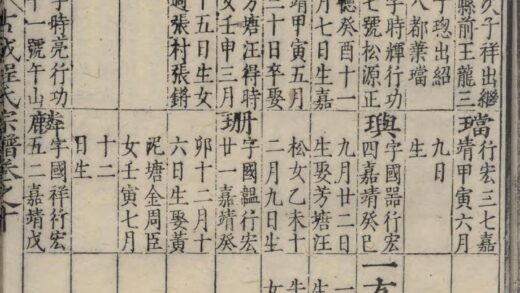 久子祥出繼
縣前王龍三
子璁出紹
八都葉璫
字時輝行功
七號松源正
德癸酉十一
月七日生嘉
靖甲寅五月
二十日卒娶
芳塘汪得時
女壬申三月
十五日生女
適張村張鏘
字時亮行功
十一號午山
璫
行宏三七嘉
靖甲寅六月
九日
生
璵
字國器行宏
四嘉靖癸巳
九月廿二日
生娶芳塘汪
松女乙未十
二月九日生
珊
字國韞行宏
廿一嘉靖癸
卯十二月十
六日生娶黃
泥塘金周臣
女壬寅七月
十二
日生
麟
字國祥行宏
五二嘉靖戊
一
女
古城程氏宗譜卷之十